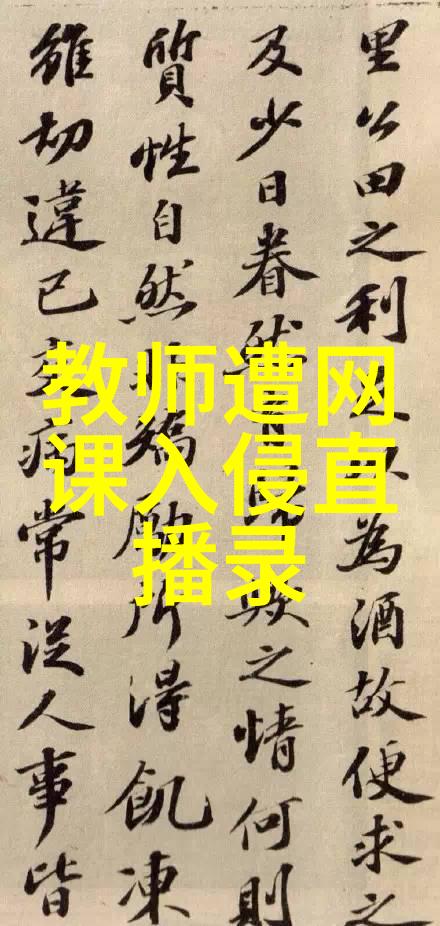 里公田之利以為酒故便求之
及少日眷然有歟之情何則
質性自然非矯勵所得飢凍
雖切違己交病常從人事皆
教师遭网
课入侵直
播录